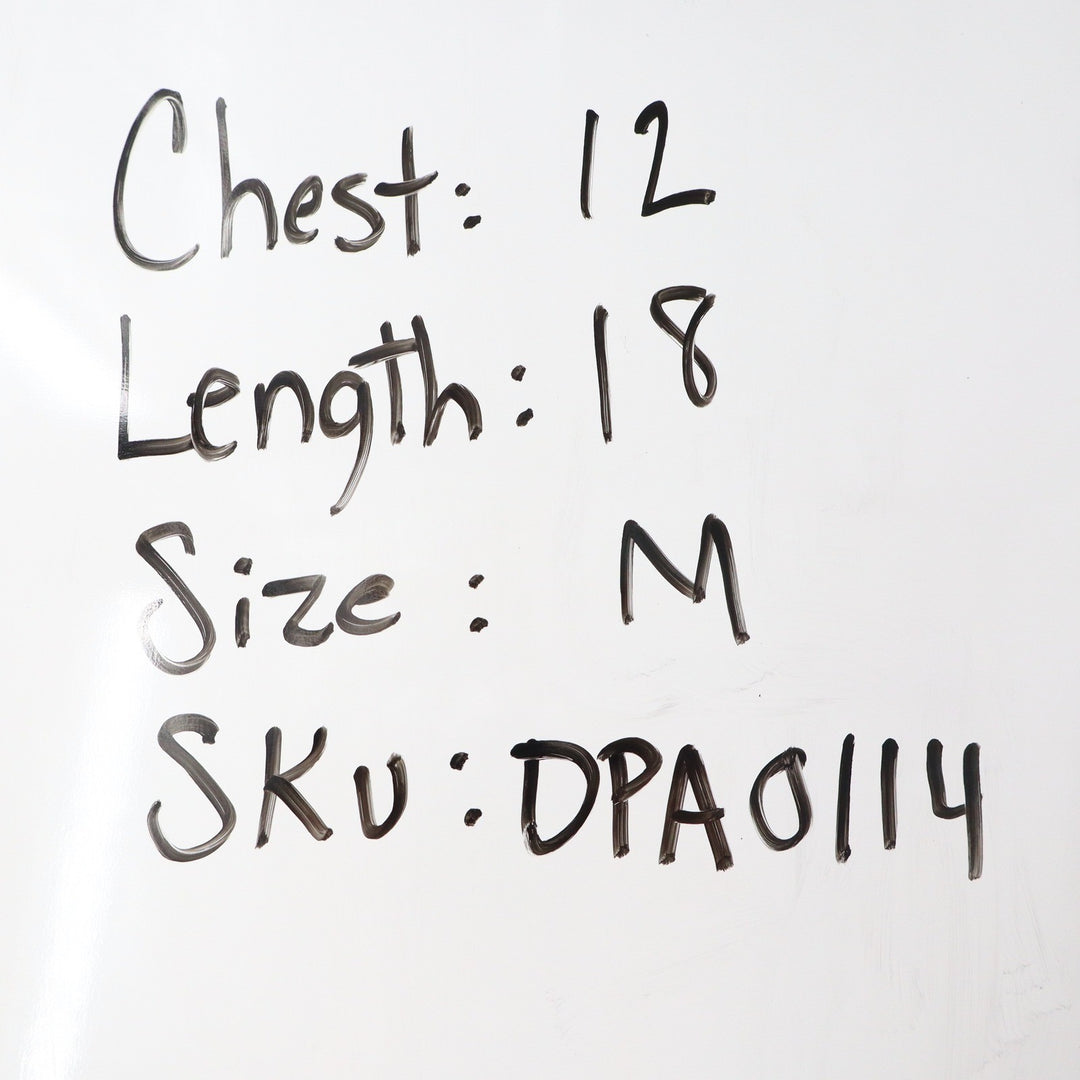 Chest: 12
Length: 18
Size: M
SKU: DPA0114